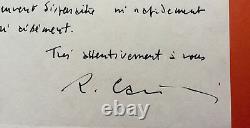 disparaître ni rapidement
ni aisément.
Très attentivement à vous
R. Cai